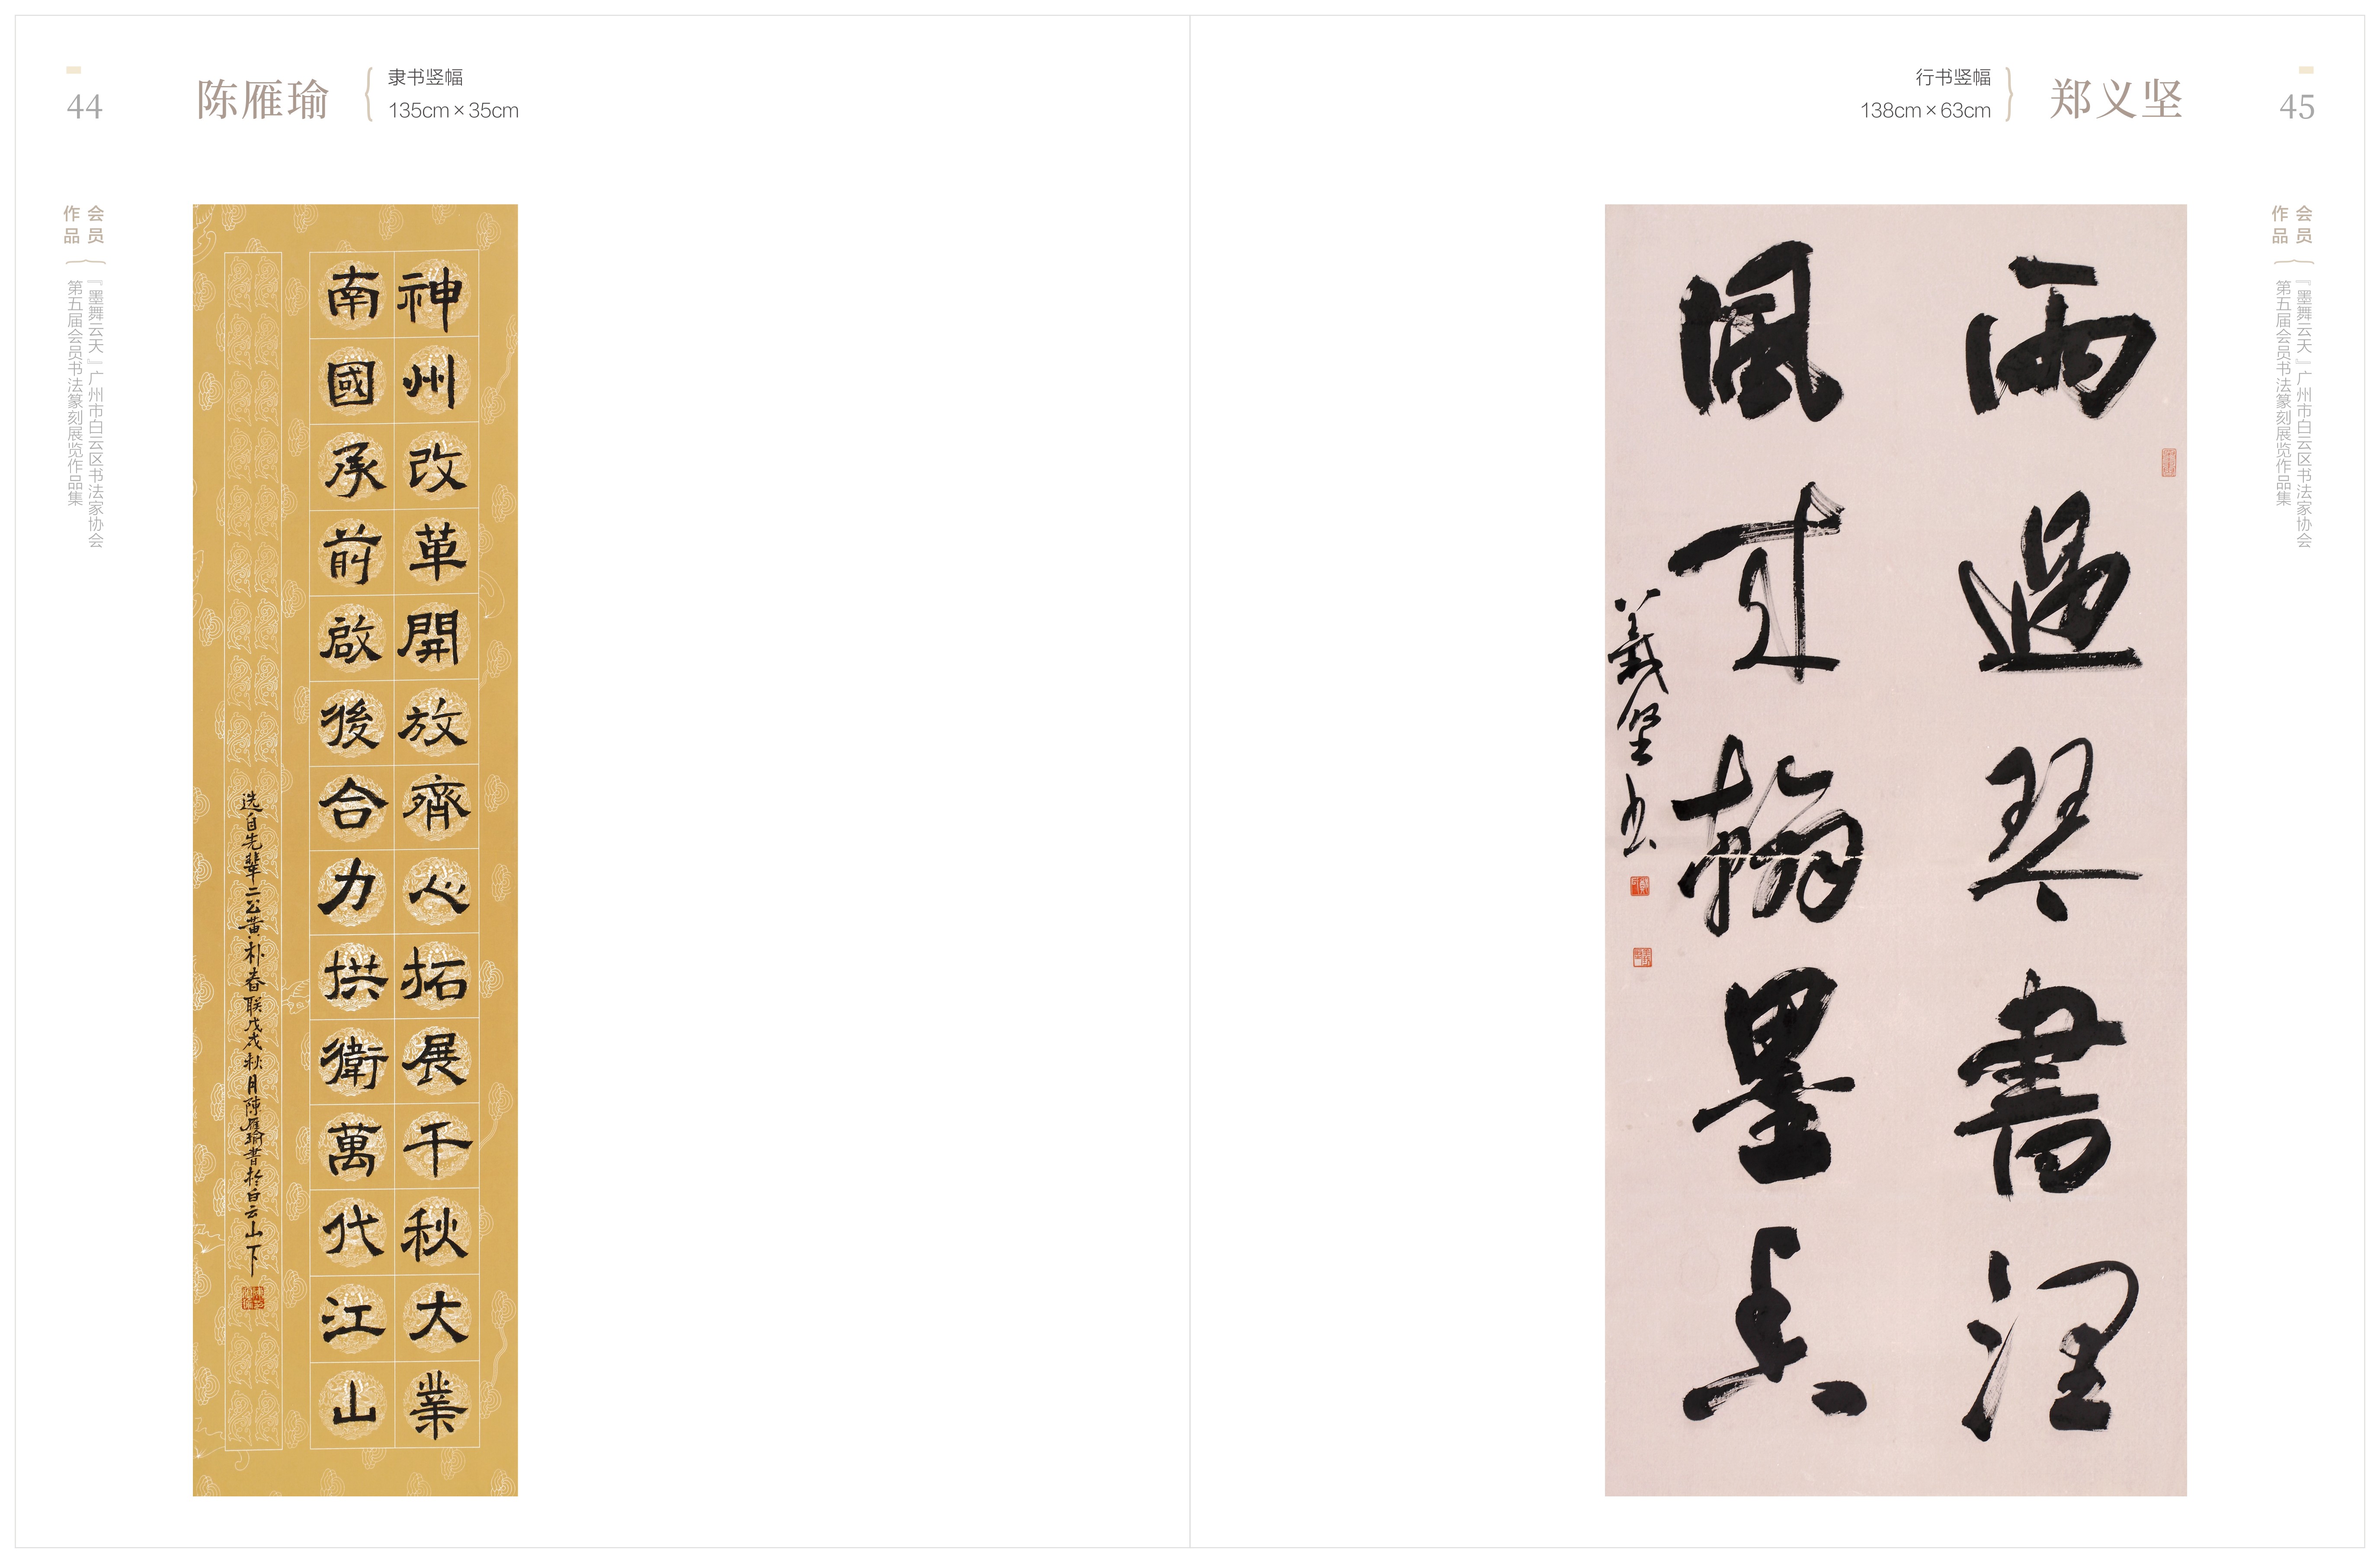 44
陈雁瑜
隶书竖幅
135cm×35cm
会员
作品
『墨舞云天』广州市白云区书法家协会
第五届会员书法篆刻展览作品集
神州改革開放齊心拓展千秋大業
南國承前啟後合力拱衛萬代江山
选自先辈二公黄朴春联戊戌秋月陳雁瑜書於白云山下
行书竖幅
138cm×63cm
郑义坚
45
会员
作品
『墨舞云天』广州市白云区书法家协会
第五届会员书法篆刻展览作品集
雨過琴書潤
風來翰墨香
義坚书